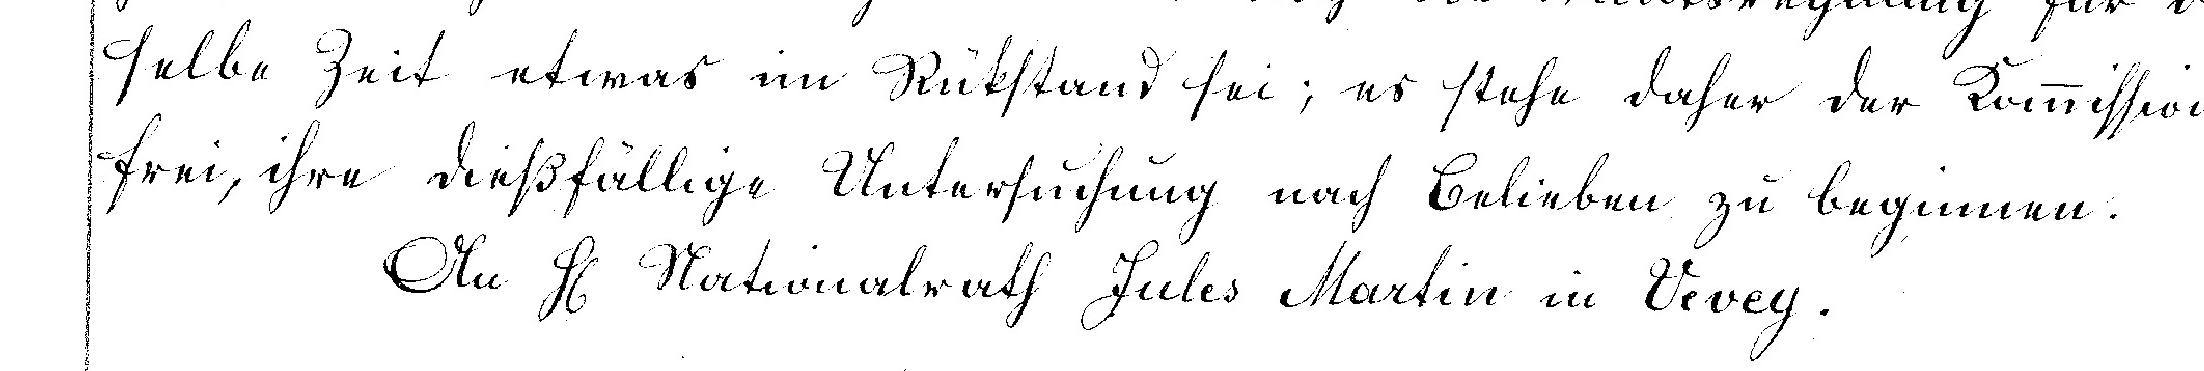 für
selbe Zeit etwas im Rükstand sei; es stehe daher der Kom̅ission
frei, ihre dießfällige Untersuchung nach Belieben zu beginnen.
An H Nationalrath Jules Martin in Vevey.